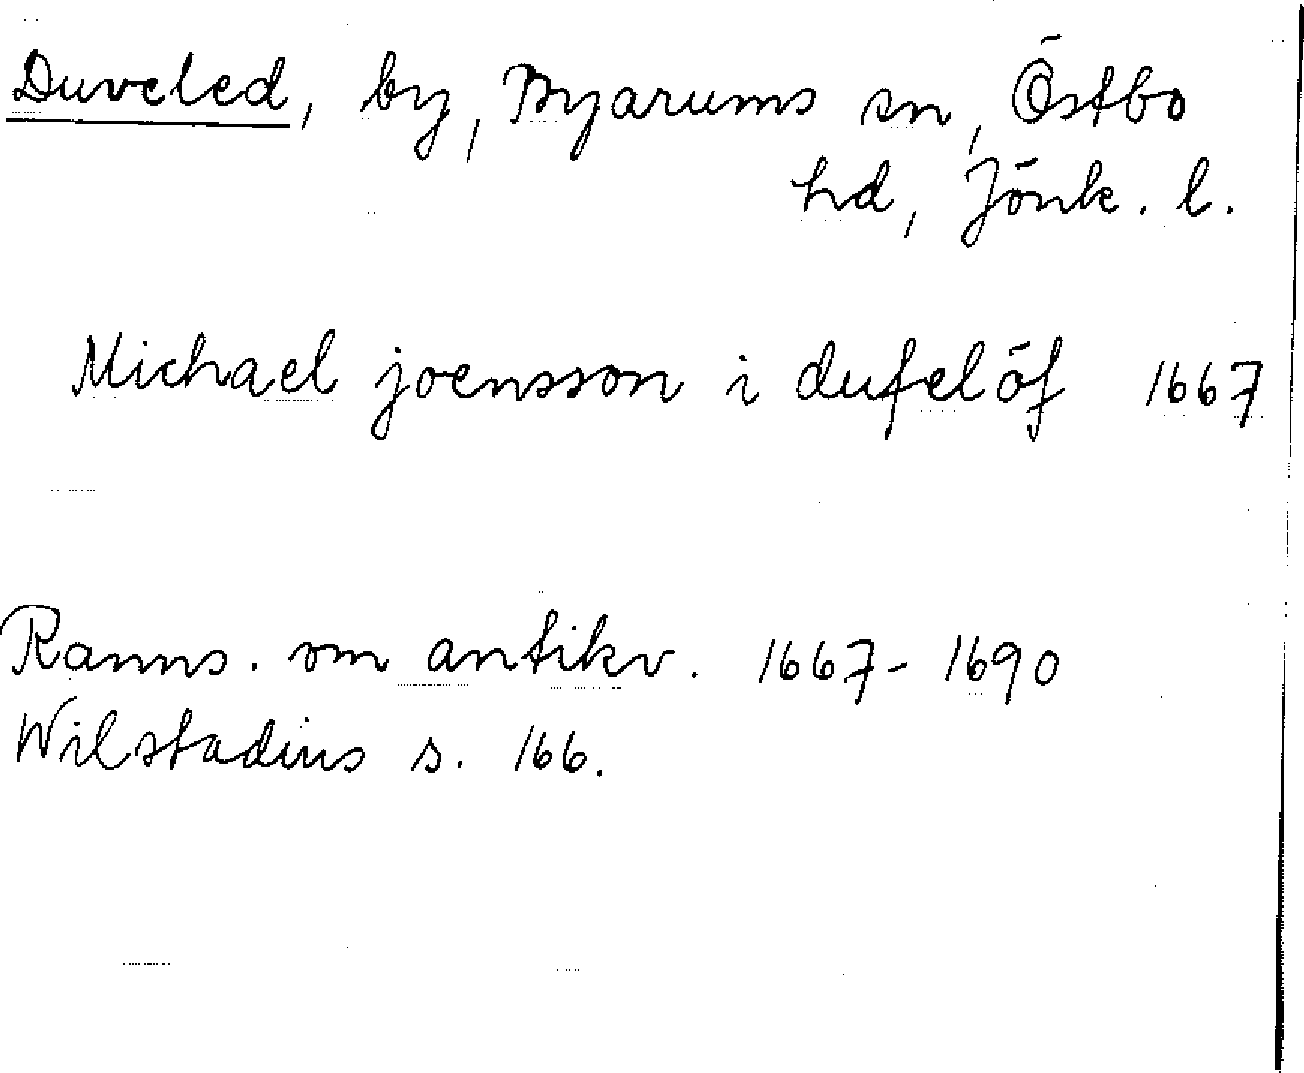 Duveled, by, Byarums sn, Östbo
hd, Jönk. l.
Michael joensson i dufelöf 1667
Ranns. om antikv. 1667-1690
Wilstadius s. 166.